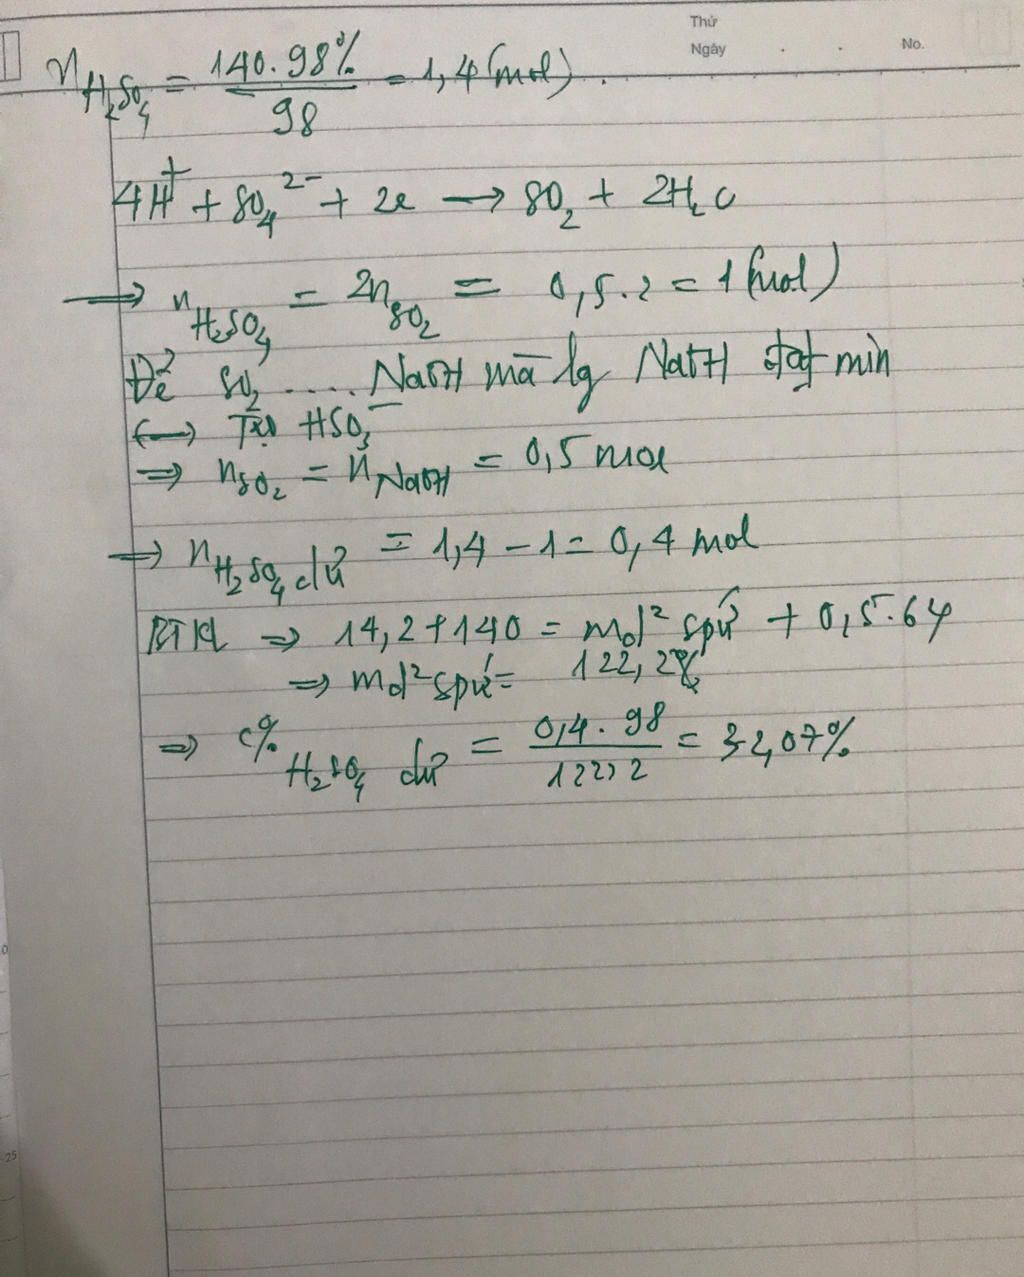 Thứ
Ngày . . No.
n H₂SO₄ = 140.98% / 98 = 1,4 (mol).
4H⁺ + SO₄²⁻ + 2e → SO₂ + 2H₂O
→ n H₂SO₄ = 2n SO₂ = 0,5.2 = 1 (mol)
Để SO₂ .... NaOH mà lg NaOH đạt min
↔ Tạo HSO₃⁻
⇒ n SO₂ = n NaOH = 0,5 mol
⇒ n H₂SO₄ dư = 1,4 - 1 = 0,4 mol
BTKL ⇒ 14,2 + 140 = md² spứ + 0,5.64
⇒ md² spứ = 122,2g
⇒ C% H₂SO₄ dư = 0,4.98 / 122,2 = 32,07%
0
25